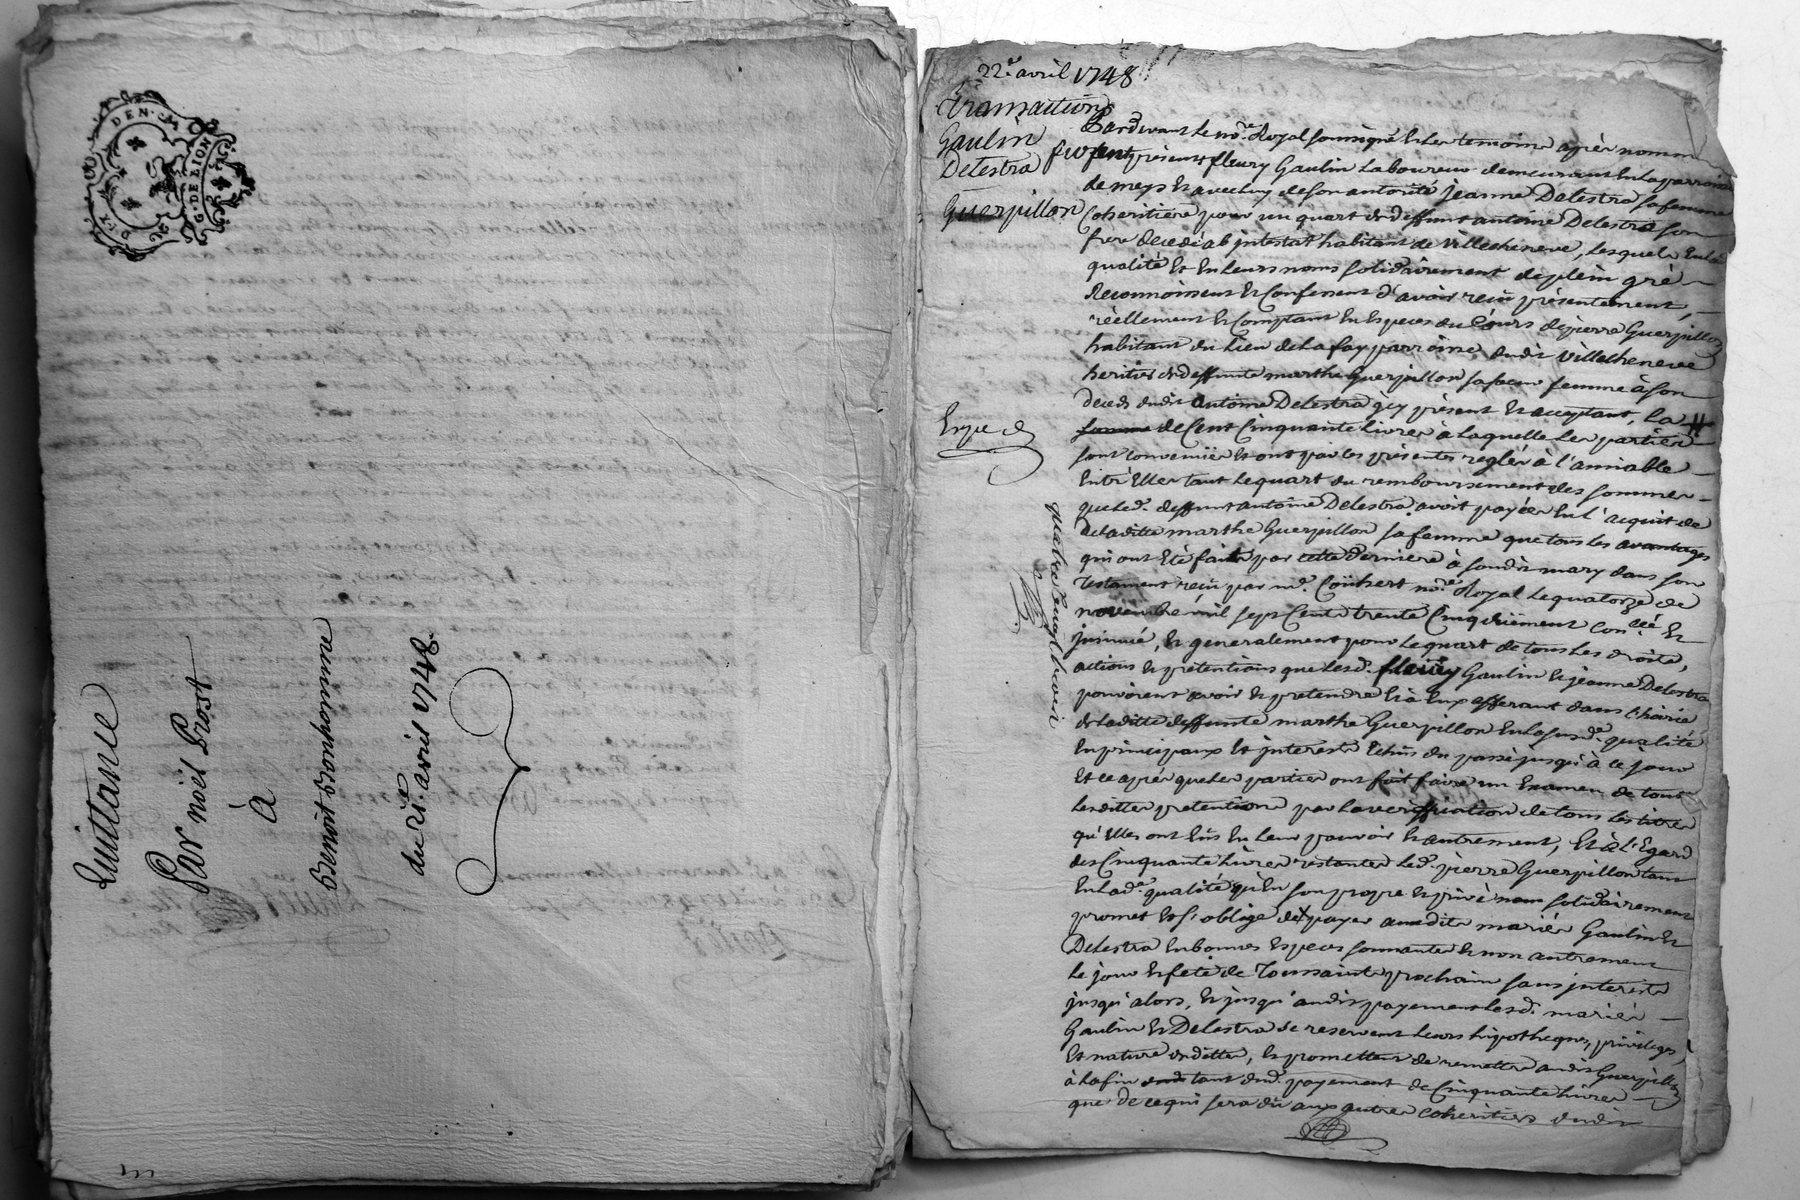 DEN.
G. DE LION
Quittance
Par noël Prost
à
Benoit Bonhomme
du 21e. avril 1748.
22e. avril 1748
Transaction
Gaulin
Delestra
Guerpillon
Expé
quatre vingt trois
Pardevant le nore. Royal soussigné Et les temoins après nommés
furent présents fleury Gaulin Laboureur demeurant En la parroisse
de meys Et avec luy de son autorité jeanne Delestra sa femme
Coheritière pour un quart de deffunt antoine Delestra son
frere decedé ab intestat habitant de Villecheneve, lesquels En la
qualité Et En leurs noms solidairement de plein gré
Reconnoissent Et Confessent d'avoir reçu présentement,
réellement Et Comptant En Especes du Cours de pierre Guerpillon
habitant du Lieu de La fay parroisse dudit Villecheneve
heritier de deffunte marthe Guerpillon sa soeur femme à son
deceds dudit antoine Delestra icy présent Et acceptant, La #
somme de Cent Cinquante livres à laquelle les parties
sont convenües Et ont par les présentes réglés à l'amiable
Entr'Elles tant le quart du remboursement des sommes
que led. deffunt antoine Delestra avoit payées En l'acquit de
de laditte marthe Guerpillon sa femme que tous les avantages
qui ont Eté faits par cette derniere à sondit mary dans son
Testament reçu par me. nore. Royal le quatorze de
novembre mil sept Cent trente Cinq düement conllé Et
jnsinué, Et generalement pour le quart de tous les droits,
actions Et prétentions que lesd. fleury Gaulin Et jeanne Delestra
pouvoient avoir Et pretendre Et à Eux afferant dans l'hoirie
de laditte deffunte marthe Guerpillon En la susde. qualité
En principaux Et jnterests Echus du passé jusqu'à ce jour
Et ce après que les parties ont fait faire un Examen de toutes
lesdittes pretentions par la verification de tous les titres
qu'Elles ont Eüs En leur pouvoir Et autrement, Et à l'Egard
des Cinquante livres restantes led. pierre Guerpillon tant
En lade. qualité qu'En son propre Et privé nom solidairement
promet Et s'oblige de payer auxdits mariés Gaulin Et
Delestra En bonnes Especes sonnantes Et non autrement
le jour Et fete de Toussaint prochain sans jnterests
jusqu'alors, Et jusqu'audit payement lesd. mariés
Gaulin Et Delestra se reservent leurs hipotheques, privileges
Et nature de dettes, Et promettent de remettre audit Guerpillon
à la fin tant dud. payement de Cinquante livres
que de ce qui sera dû aux autres coheritiers dudit